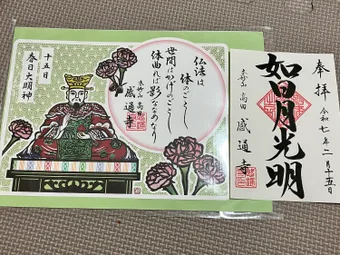 十五日
春日大明神
仏法は
体のごとし
世間はかげのごとし
体曲れば影ななめなり
本妙山 高田
感通寺
奉拝
令和七年二月十五日
如日月光明
本妙山 高田
感通寺